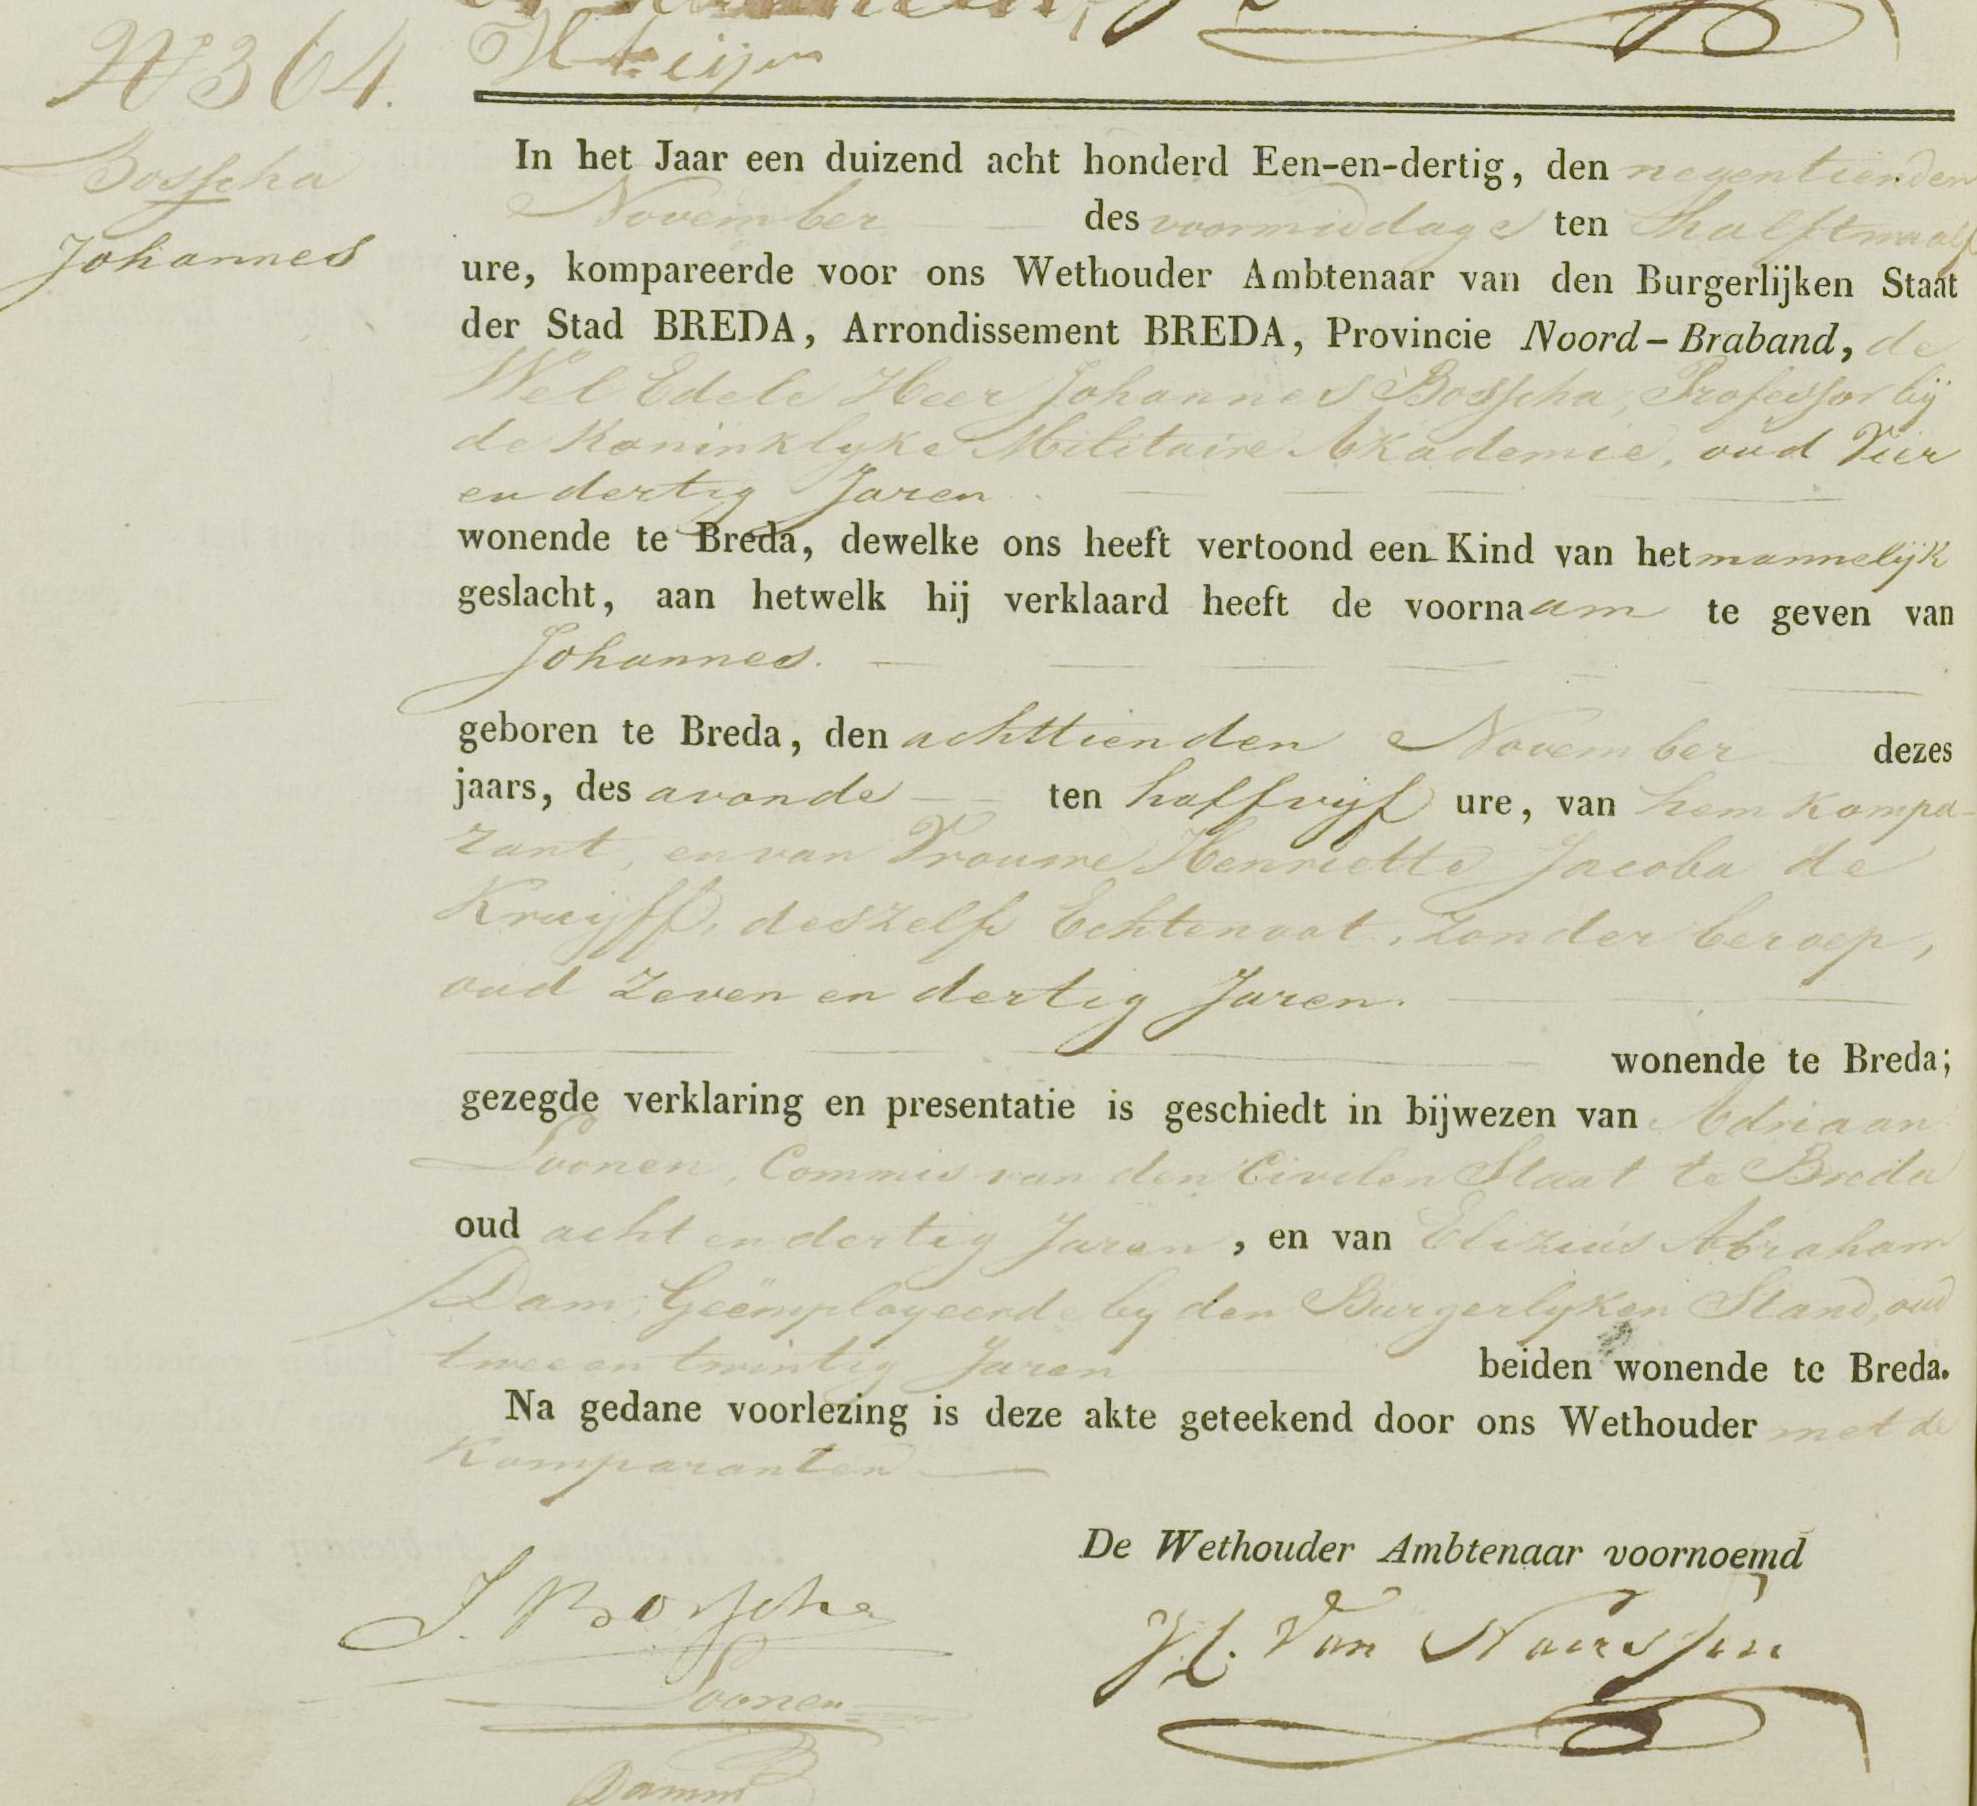 No 364.
Bosscha
Johannes
In het Jaar een duizend acht honderd Een-en-dertig, den negentienden
November des voormiddags ten half twaalf
ure, kompareerde voor ons Wethouder Ambtenaar van den Burgerlijken Staat
der Stad BREDA, Arrondissement BREDA, Provincie Noord-Braband, de
Wel Edele Heer Johannes Bosscha, Professor bij
de Koninklyke Militaire Akademie, oud Vier
en dertig Jaren
wonende te Breda, dewelke ons heeft vertoond een Kind van het mannelijk
geslacht, aan hetwelk hij verklaard heeft de voornaam te geven van
Johannes.
geboren te Breda, den achttienden November dezes
jaars, des avonds ten half vijf ure, van hem kompa-
rant, en van Vrouwe Henriette Jacoba de
Kruijff, deszelfs Echtenoot, zonder beroep,
oud zeven en dertig Jaren.
wonende te Breda;
gezegde verklaring en presentatie is geschiedt in bijwezen van Adriaan
Loonen, Commis van den Civilen Staat te Breda
oud acht en dertig Jaren, en van Elizeus Abraham
Dam, Geëmployeerde by den Burgerlyken Stand, oud
twee en twintig Jaren beiden wonende te Breda.
Na gedane voorlezing is deze akte geteekend door ons Wethouder met de
Komparanten
De Wethouder Ambtenaar voornoemd
J. Bosscha
Van
Loonen